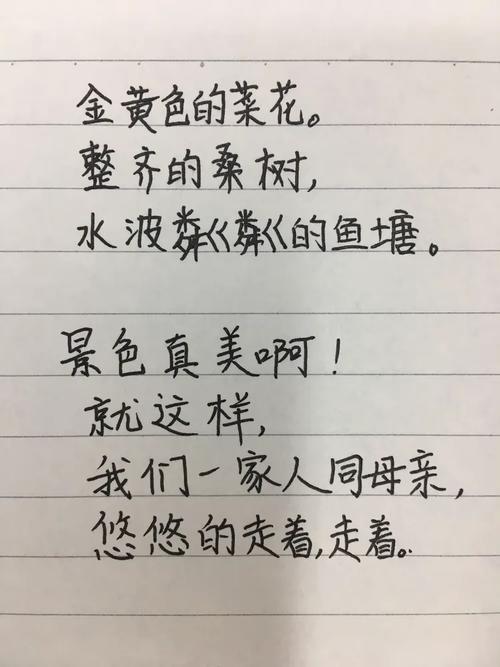 金黄色的菜花。
整齐的桑树,
水波粼粼的鱼塘。
景色真美啊!
就这样,
我们一家人同母亲,
悠悠的走着,走着。